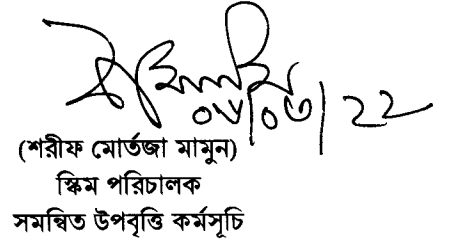 ০৮/০৩/২২
(শরীফ মোর্তজা মামুন)
স্কিম পরিচালক
সমন্বিত উপবৃত্তি কর্মসূচি